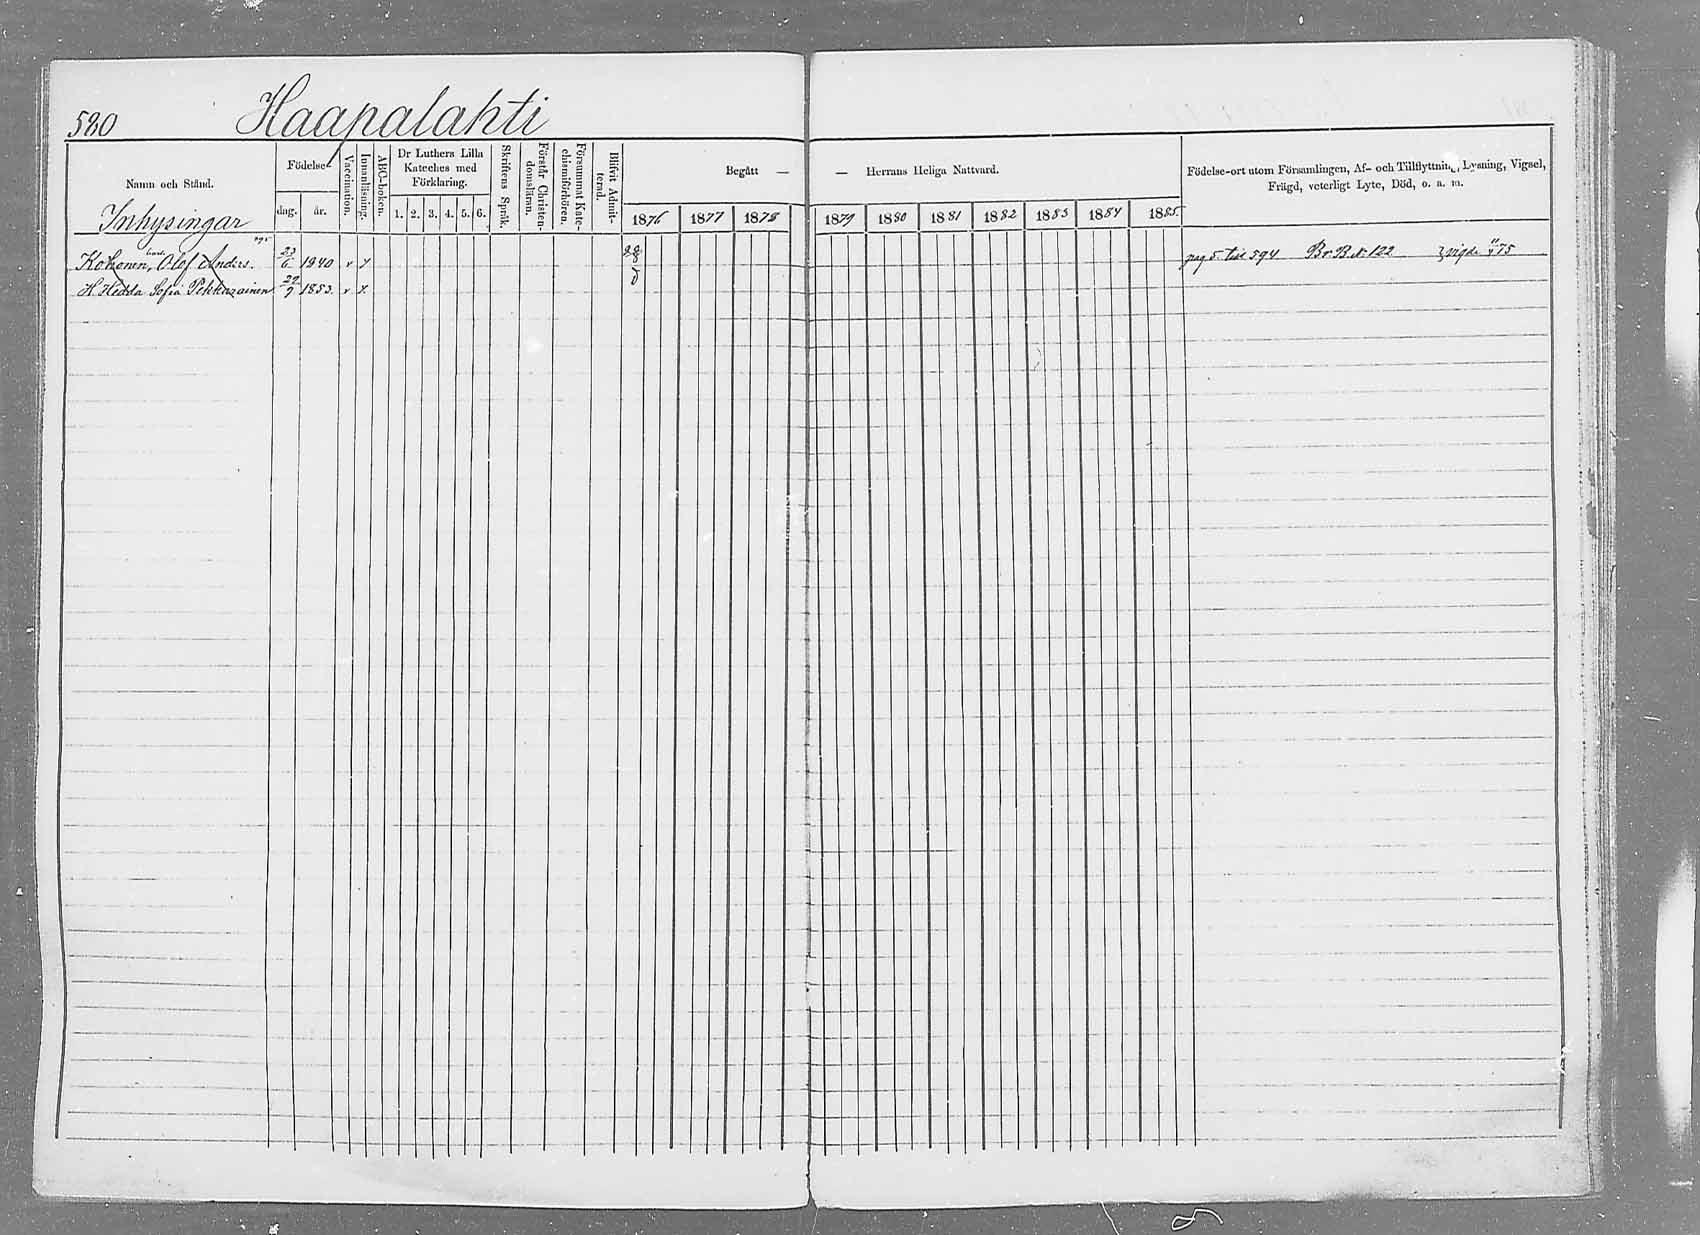 580 Haapalahti
Namn och Stånd. Födelse- Vaccination. Innanläsning. ABC-boken. Dr Luthers Lilla Kateches med Förklaring. Skriftens Språk. Förstår Christendomsläran. Försummat Katechismiförhören. Blifvit Admitterad. Begått — — Herrans Heliga Nattvard. Födelse-ort utom Församlingen, Af- och Tillflyttning, Lysning, Vigsel, Frägd, veterligt Lyte, Död, o. a. m.
dag. år. 1. 2. 3. 4. 5. 6. 1876 1877 1878 1879 1880 1881 1882 1883 1884 1885.
Inhysingar
Kokonen, Olof Anders. 23/6 1840 v y pag 5. Tist 594 Br. B. N. 122 vigde 11/4 75
H. Hedda Sofia Pekkarainen 22/9 1853. v y.